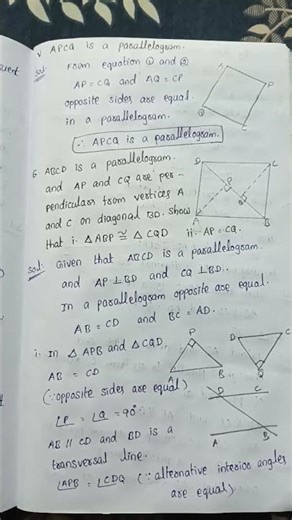 V. APCQ is a parallelogram.
Sol:
From equation ① and ②
AP = CQ and AQ = CP
opposite sides are equal
in a parallelogram.
∴ APCQ is a parallelogram.
6. ABCD is a parallelogram
and AP and CQ are per-
pendiculars from vertices A
and C on diagonal BD. Show
that i. △APB ≅ △CQD ii. AP = CQ.
Sol: Given that ABCD is a parallelogram
and AP ⊥ BD and CQ ⊥ BD.
In a parallelogram opposite are equal.
AB = CD and BC = AD.
i. In △ APB and △CQD,
AB = CD
(∵ opposite sides are equal)
∠P = ∠Q = 90°
AB || CD and BD is a
transversal line.
∠APB = ∠CDQ (∵ alternative interior angles
are equal)
A
P
D
C
P
A
B
P
B
D
C
Q
D
C
A
B